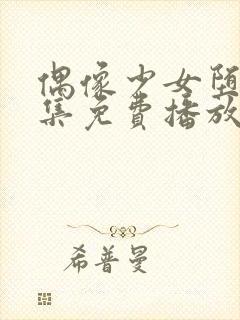 偶像少女堕
集免费播放
希普曼